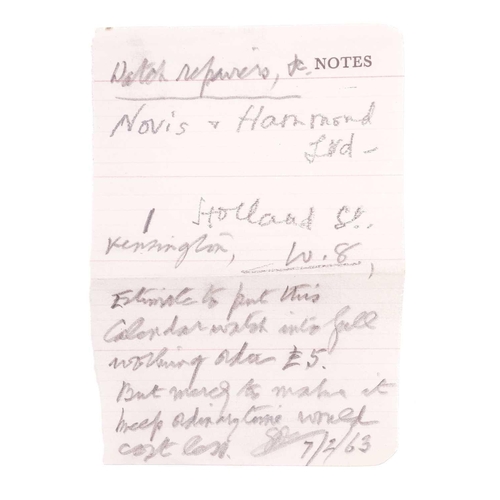 Watch repairers, &c. NOTES
Novis & Hammond
Ltd -
1 Holland St.
Kensington, W.8,
Estimate to put this
Calendar watch into full
working order £5.
But merely to make it
keep ordinary time would
cost less. 7/2/63